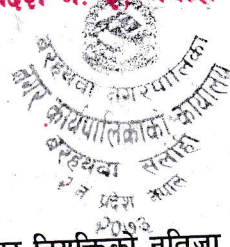 प्रदेश नं. २,
बरहथवा नगरपालिका
नगर कार्यपालिकाको कार्यालय
बरहथवा सर्लाही
२ नं प्रदेश नेपाल
२०७३
नतिजा